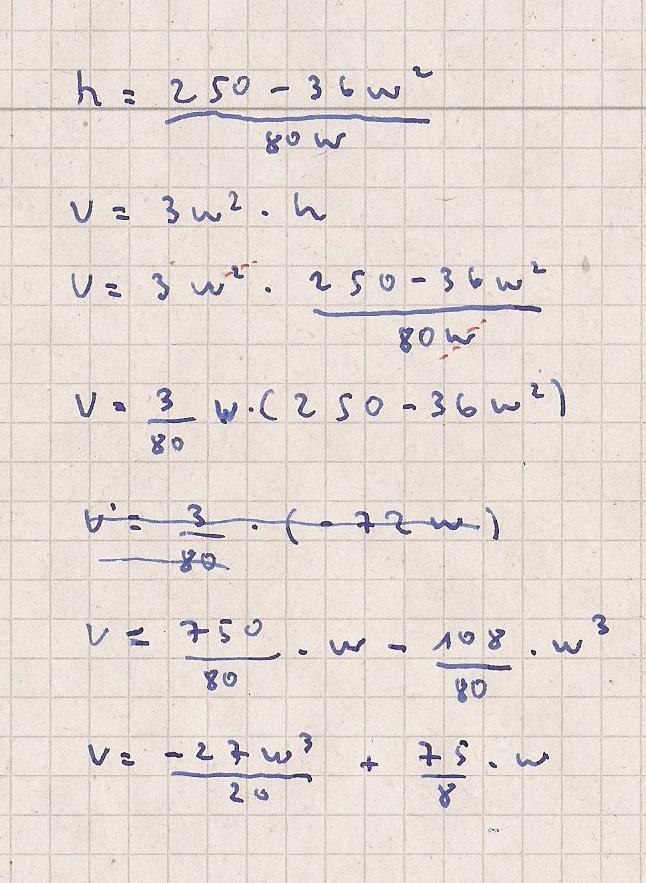 h = (250 - 36w²)/(80w)
V = 3w² · h
V = 3w² · (250 - 36w²)/(80w)
V = 3/80 w·(250 - 36w²)
V' = 3/80 · (-72w)
V = 750/80 · w - 108/80 · w³
V = -27w³/20 + 75/8 · w